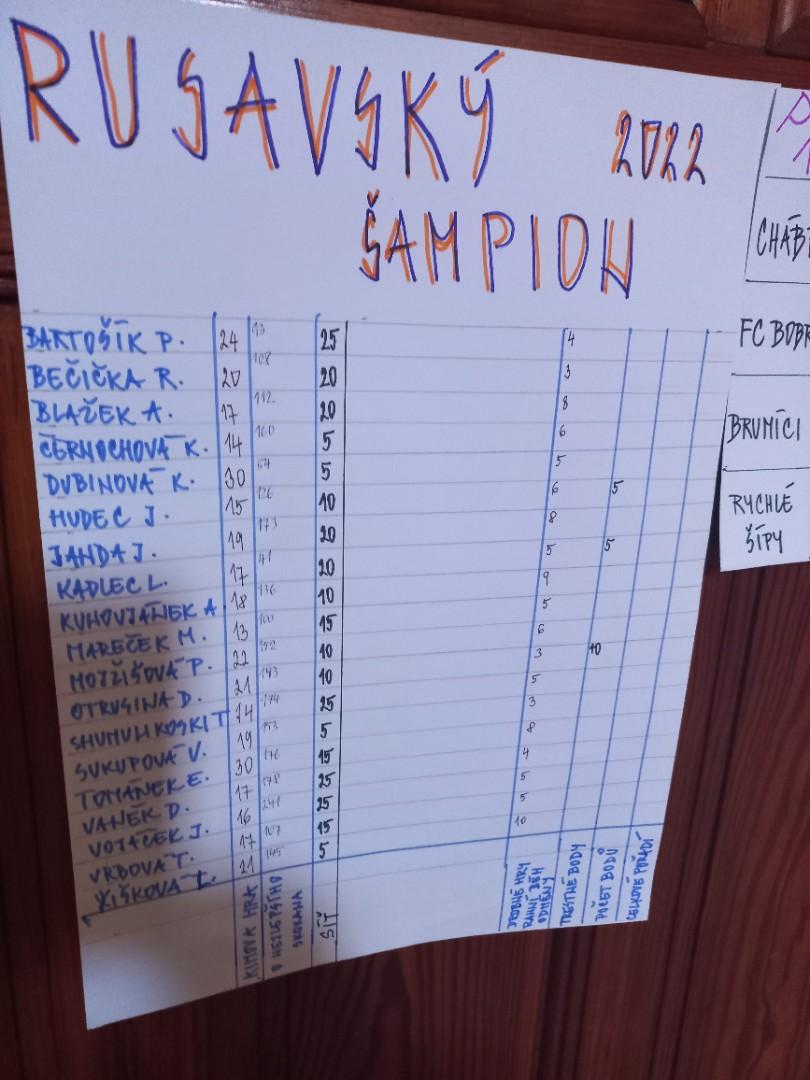 RUSAVSKÝ
2022
ŠAMPION
BARTOŠÍK P. 24 93 25 4
BEČIČKA R. 20 108 20 3
BLAŽEK A. 17 112 20 8
ČERNOCHOVÁ K. 14 160 5 6
DUBINOVÁ K. 30 54 5 5
HUDEC J. 15 126 10 6 5
JANDA J. 19 173 20 8
KADLEC L. 17 41 20 5 5
KUHOVJÁNEK A 18 136 10 9
MAREČEK M. 13 100 15 5
MOTŽIŠOVÁ P. 22 152 10 6
OTRUSINA D. 21 143 10 3 10
SHUMUHKOSKI T 14 174 25 5
SUKUPOVÁ V. 19 153 5 3
TOMÁNEK E. 30 176 15 8
VANĚK D. 17 178 25 4
VOJÁČEK J. 16 25 5
VRBOVÁ T. 17 107 15 5
ŽIŠKOVÁ L. 21 145 5 10
KIMOVA HRA
O NEJLEPŠÍHO
SKOKANA
SÍŤ
DROBNÉ HRY
RANNÍ BĚH
ODMĚNY
TRESTNÉ BODY
POČET BODŮ
CELKOVÉ POŘADÍ
P
CHÁB
FC BOBR
BRUMÍCI
RYCHLÉ
ŠÍPY